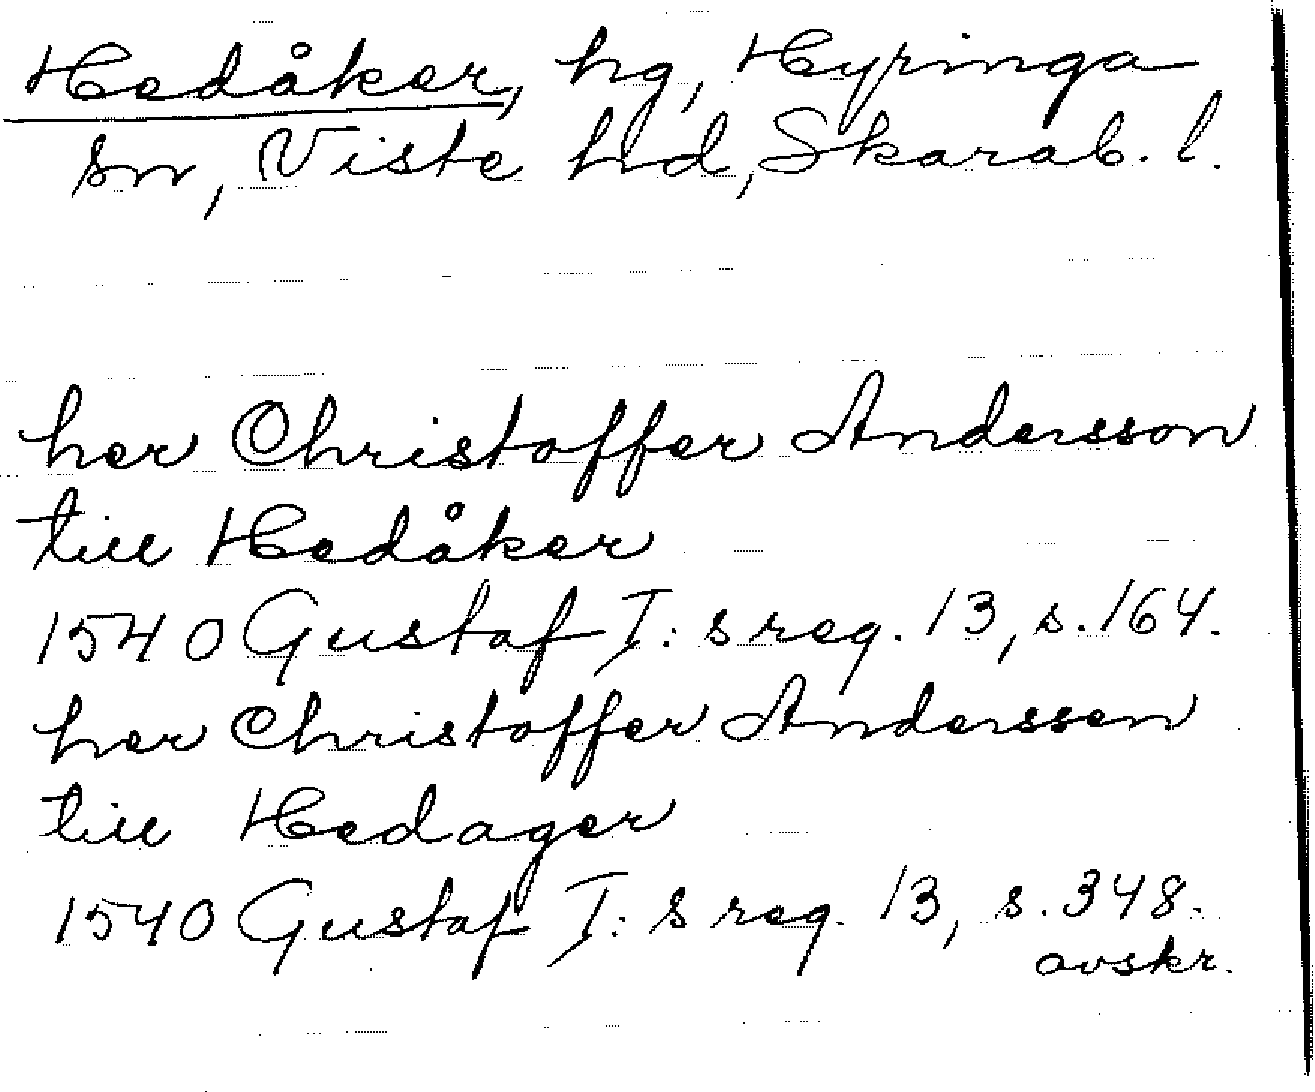 Hedåker, hg, Hyringa
sn, Viste hd, Skarab. l.
her Christoffer Andersson
till Hedåker
1540 Gustaf I:s reg. 13, s. 164.
her Christoffer Anderssen
till Hedager
1540 Gustaf I:s reg. 13, s. 348.
avskr.